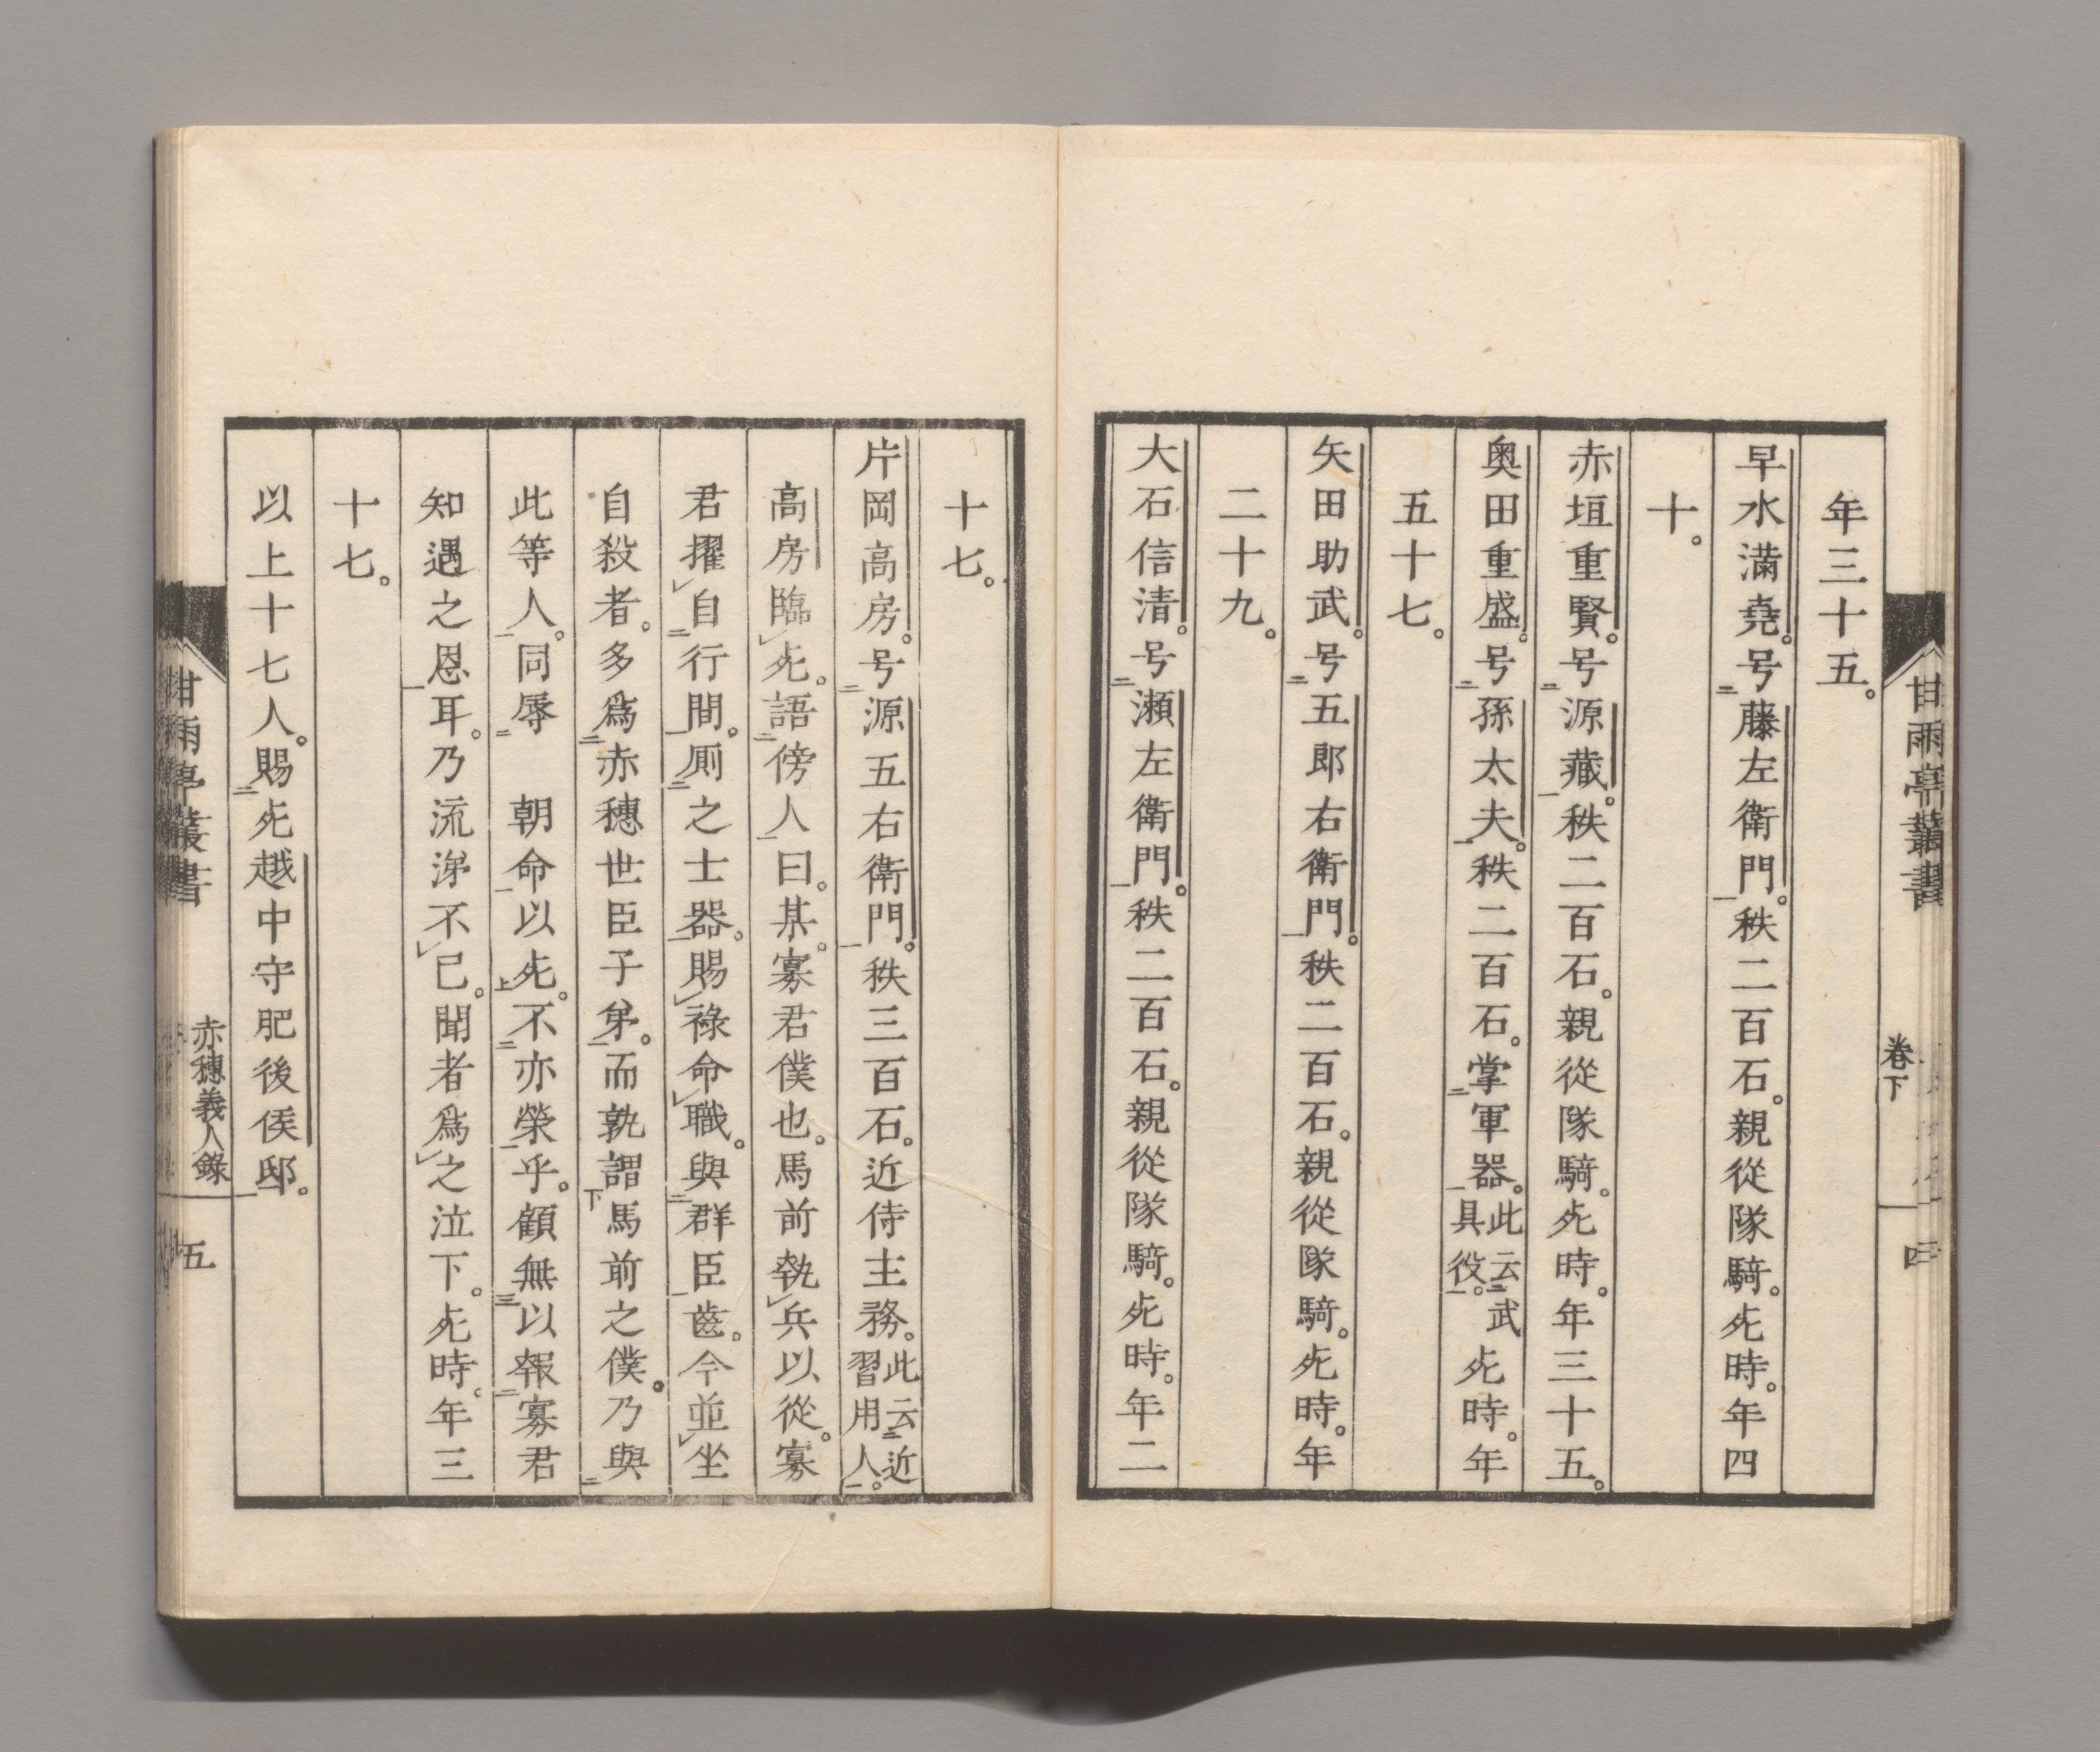 年三十五。
早水滿堯。号藤左衛門。秩二百石。親從隊騎。死時。年四
十。
赤垣重賢。号源藏。秩二百石。親從隊騎。死時。年三十五。
奥田重盛。号孫太夫。秩二百石。掌軍器。此云武具役。死時。年
五十七。
矢田助武。号五郎右衛門。秩二百石。親從隊騎。死時。年
二十九。
大石信清。号瀬左衛門。秩二百石。親從隊騎。死時。年二
甘雨亭叢書
卷下
四
十七。
片岡高房。号源五右衛門。秩三百石。近侍主務。此云近習用人。
高房臨死。語傍人曰。某。寡君僕也。馬前執兵以從。寡
君擢自行間。厠之士器。賜祿命職。與群臣齒。今並坐
自殺者。多爲赤穗世臣子弟。而孰謂馬前之僕。乃與
此等人。同辱 朝命以死。不亦榮乎。顧無以報寡君
知遇之恩耳。乃流涕不已。聞者爲之泣下。死時。年三
十七。
以上十七人。賜死越中守肥後侯邸。
甘雨亭叢書
赤穗義人錄
五